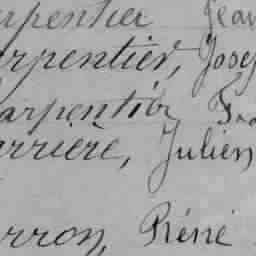 arpentier Jean
arpentier, Josep
Carpentier Fra
arrière, Julien
arron, Réné